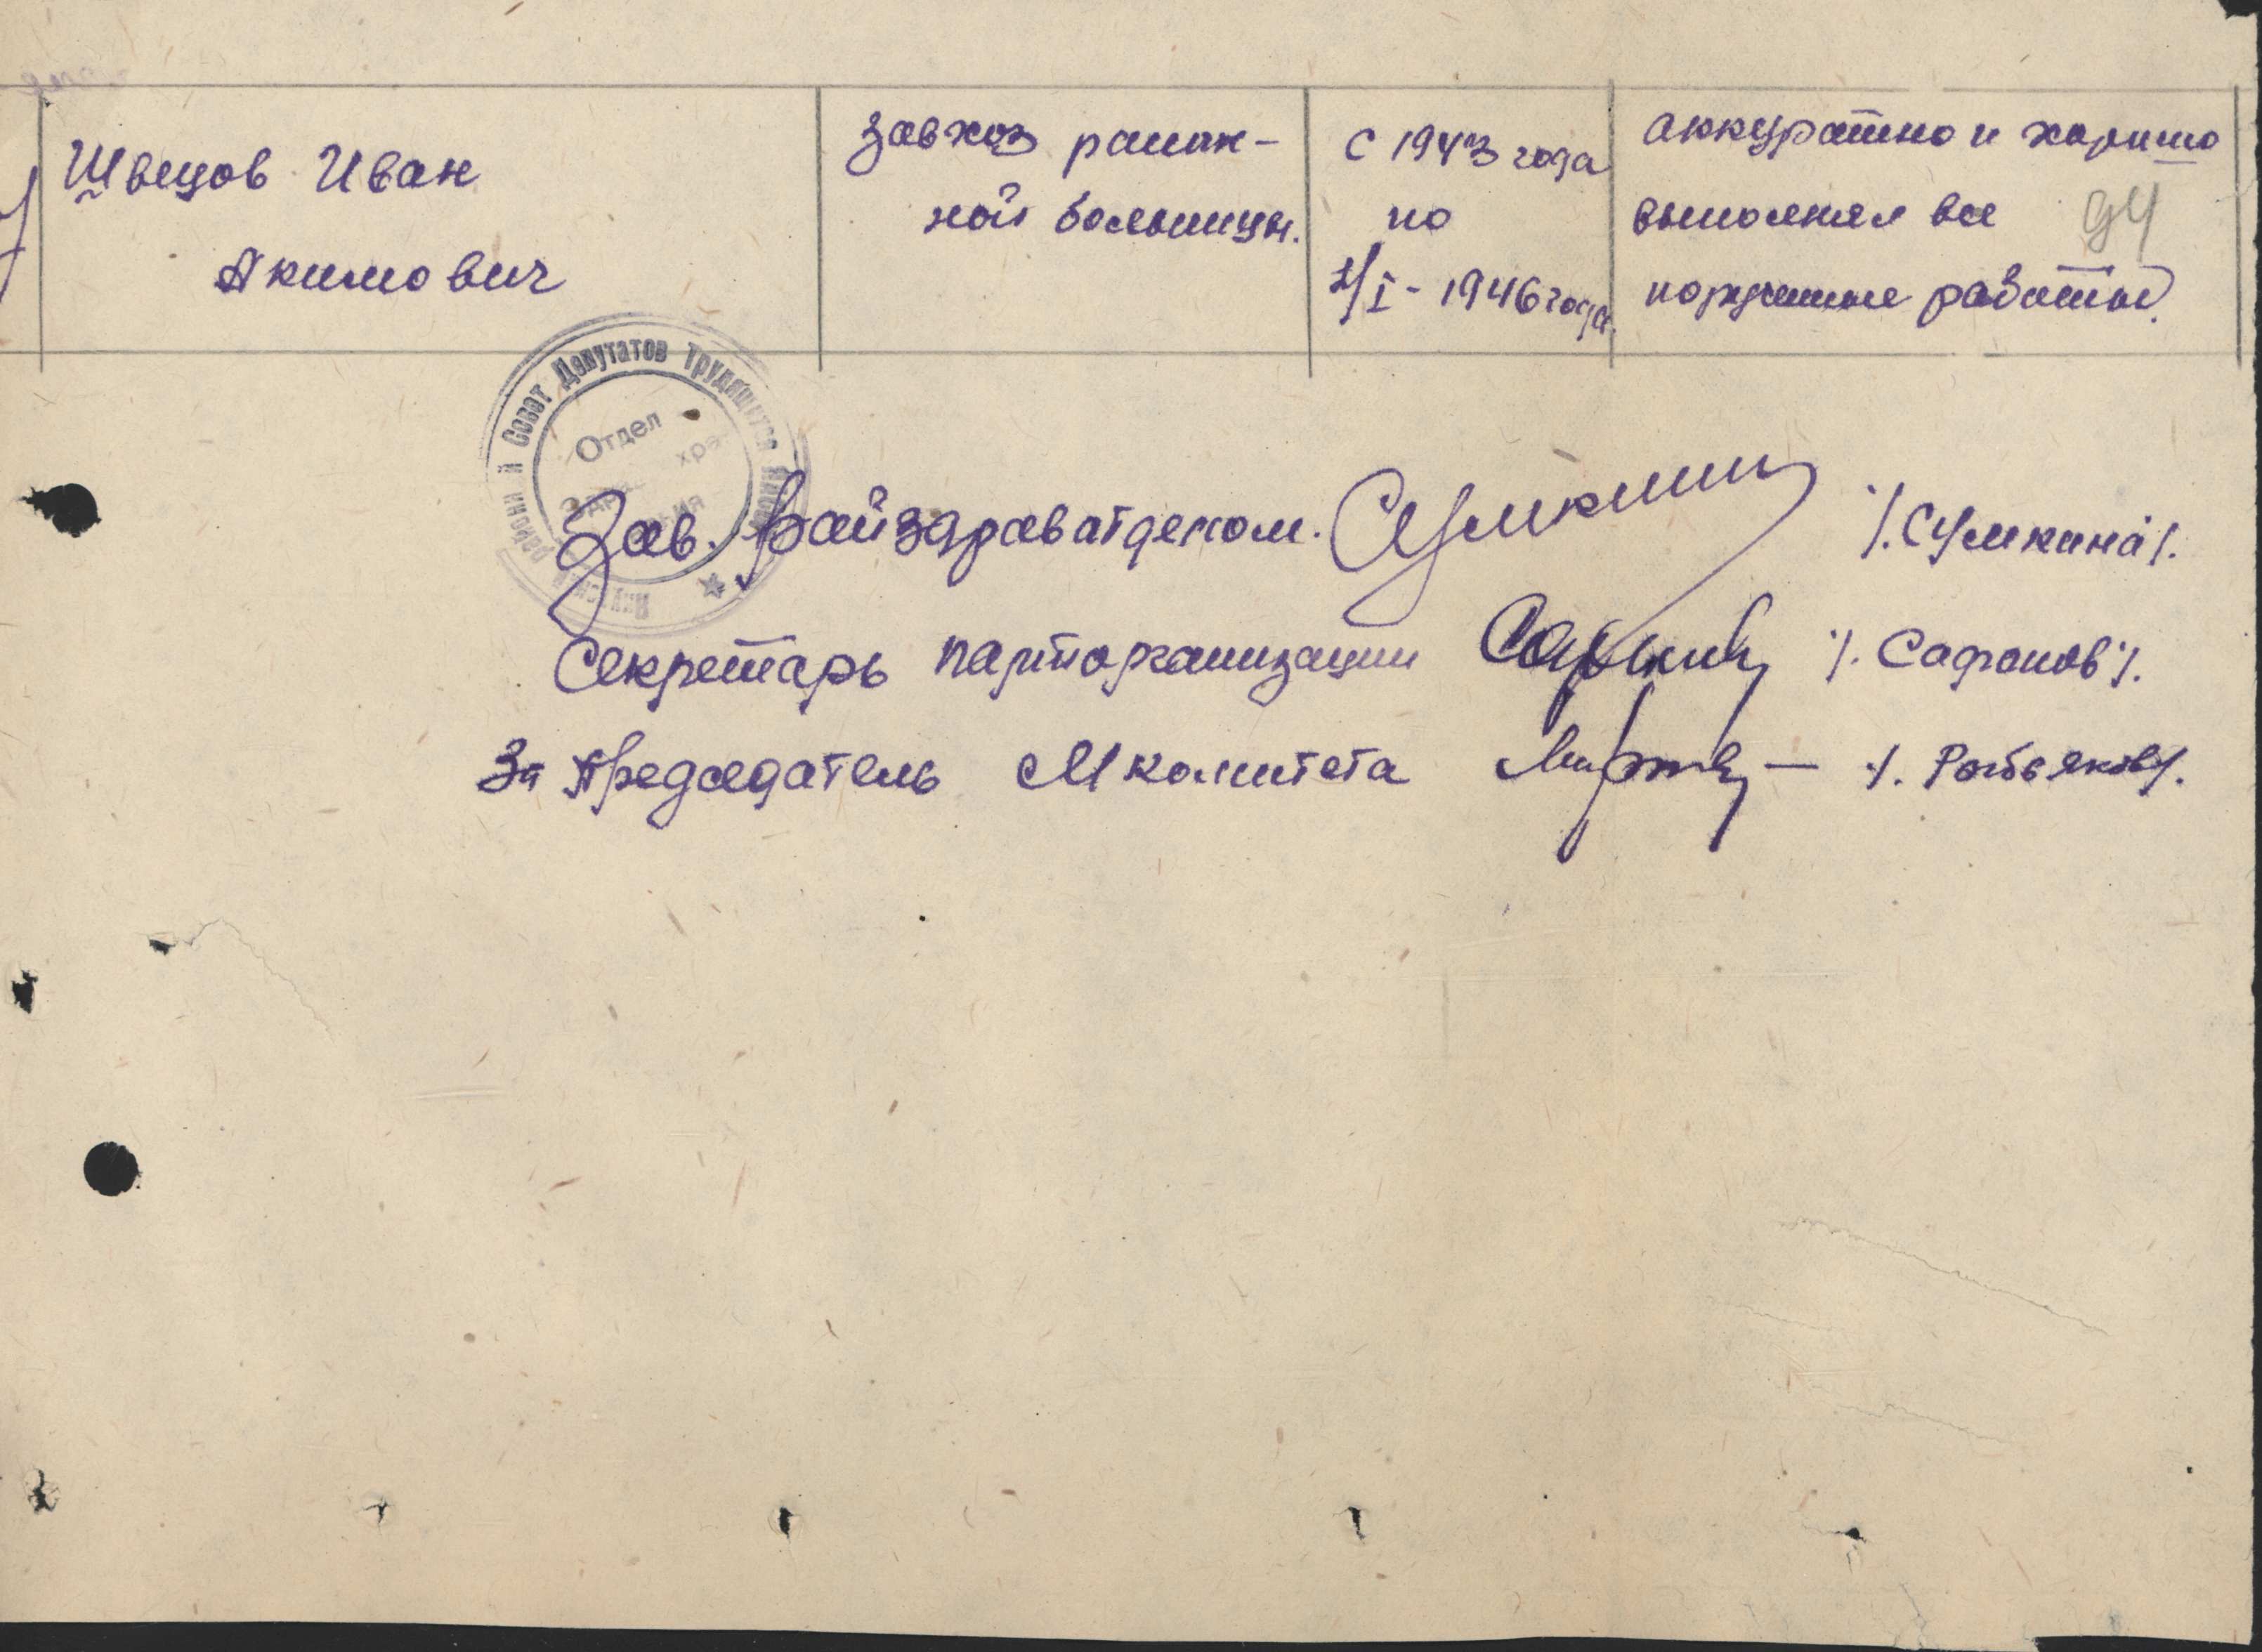 Швецов Иван
Акимович
завхоз район-
ной больницы.
с 1943 года
по
1/I - 1946 года.
аккуратно и хорошо
выполнял все
порученные работы.
94
Совет Депутатов Трудящихся
Отдел
Зав. Райздравотделом. /.Сумкина/.
Секретарь парторганизации /. Сафонов/.
За Председатель М комитета